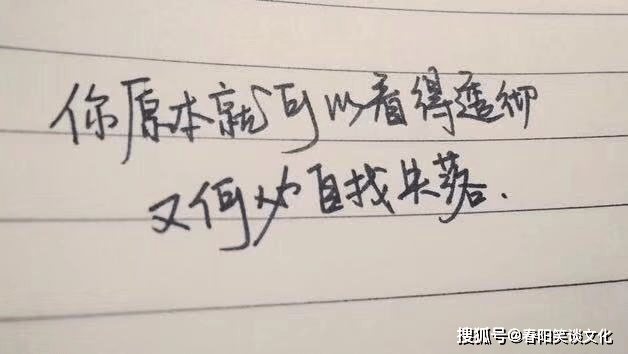 你原本就可以看得透彻
又何必自找失落.
搜狐号@春阳笑谈文化